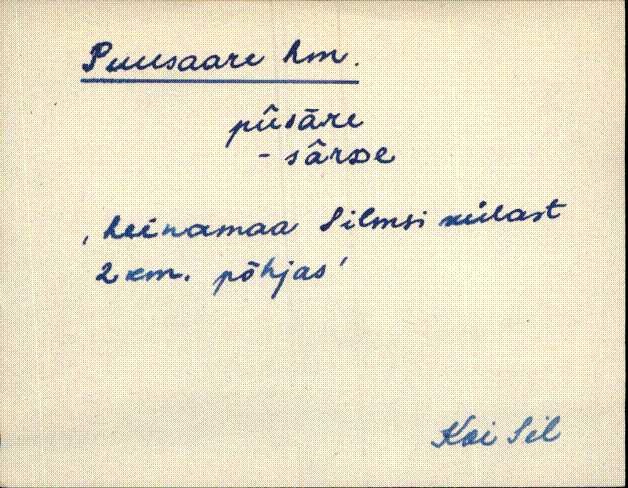 Puusaare hm.
pûsāre
- sârɒe
‚heinamaa Silmsi külast
2 km. põhjas’
Koi Sil